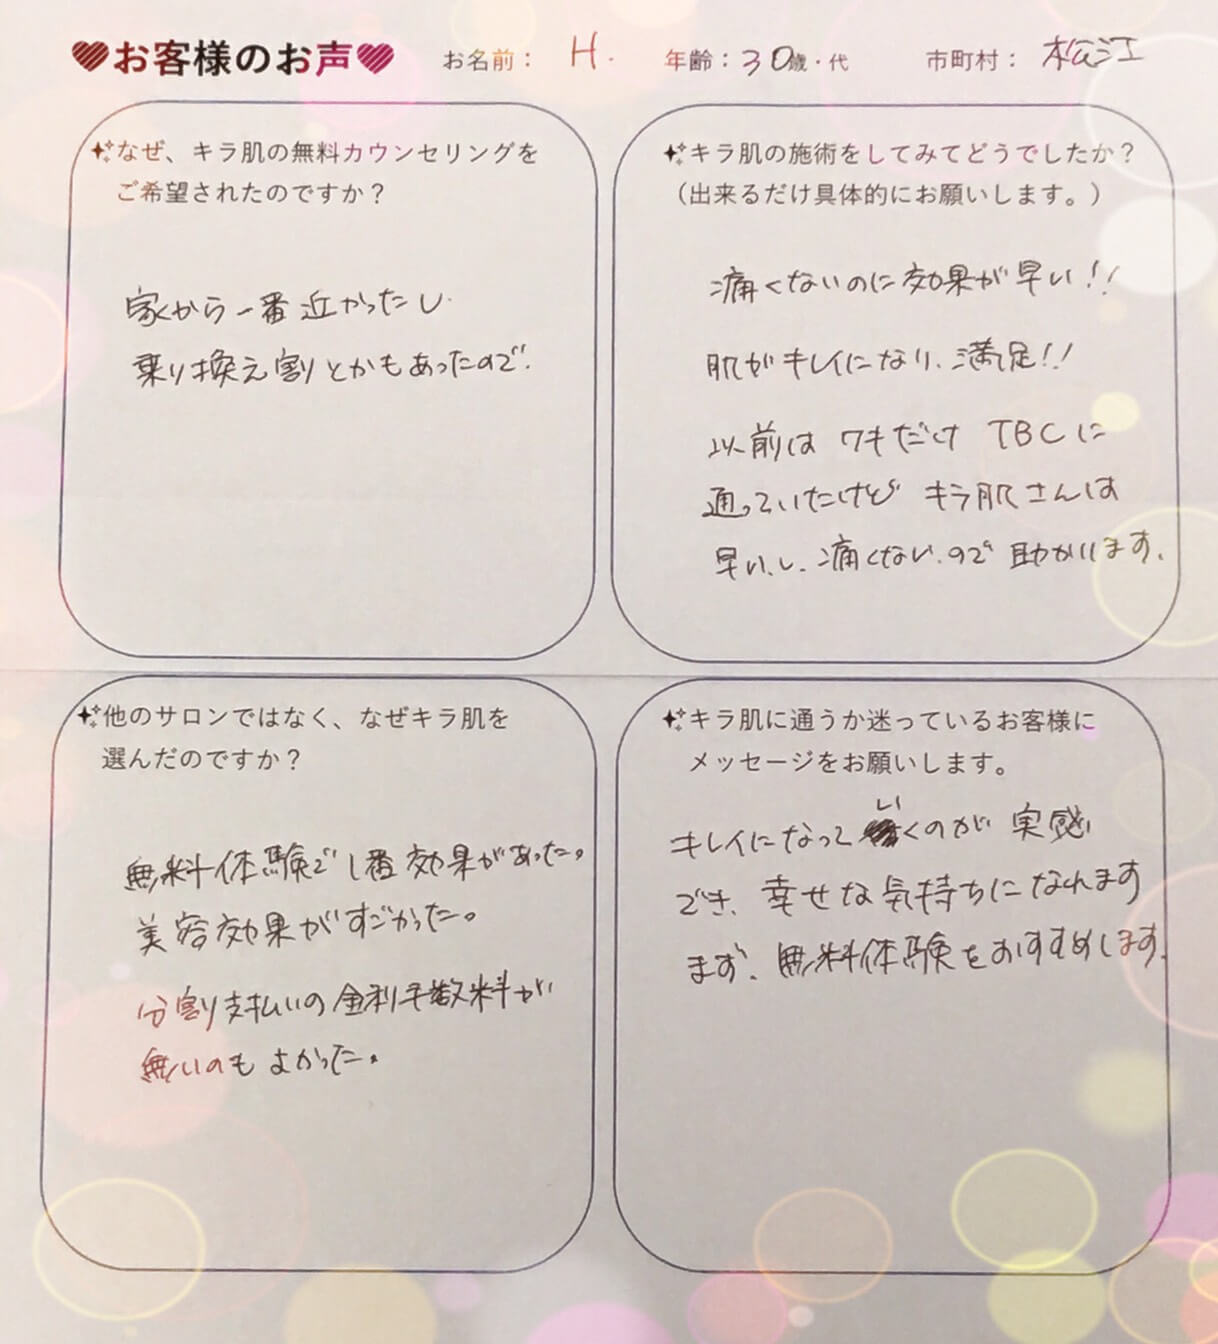 ♥お客様のお声♥ お名前： H. 年齢：30歳・代 市町村： 松江
なぜ、キラ肌の無料カウンセリングを
ご希望されたのですか？
家から一番近かったし
乗り換え割とかもあったので.
キラ肌の施術をしてみてどうでしたか？
（出来るだけ具体的にお願いします。）
痛くないのに効果が早い!!
肌がキレイになり、満足!!
以前は ワキだけ TBCに
通っていたけど キラ肌さんは
早いし、痛くないので助かります。
他のサロンではなく、なぜキラ肌を
選んだのですか？
無料体験で1番効果があった。
美容効果がすごかった。
分割支払いの金利手数料が
無いのもよかった。
キラ肌に通うか迷っているお客様に
メッセージをお願いします。
キレイになっていくのが実感
でき、幸せな気持ちになれます
まず、無料体験をおすすめします。